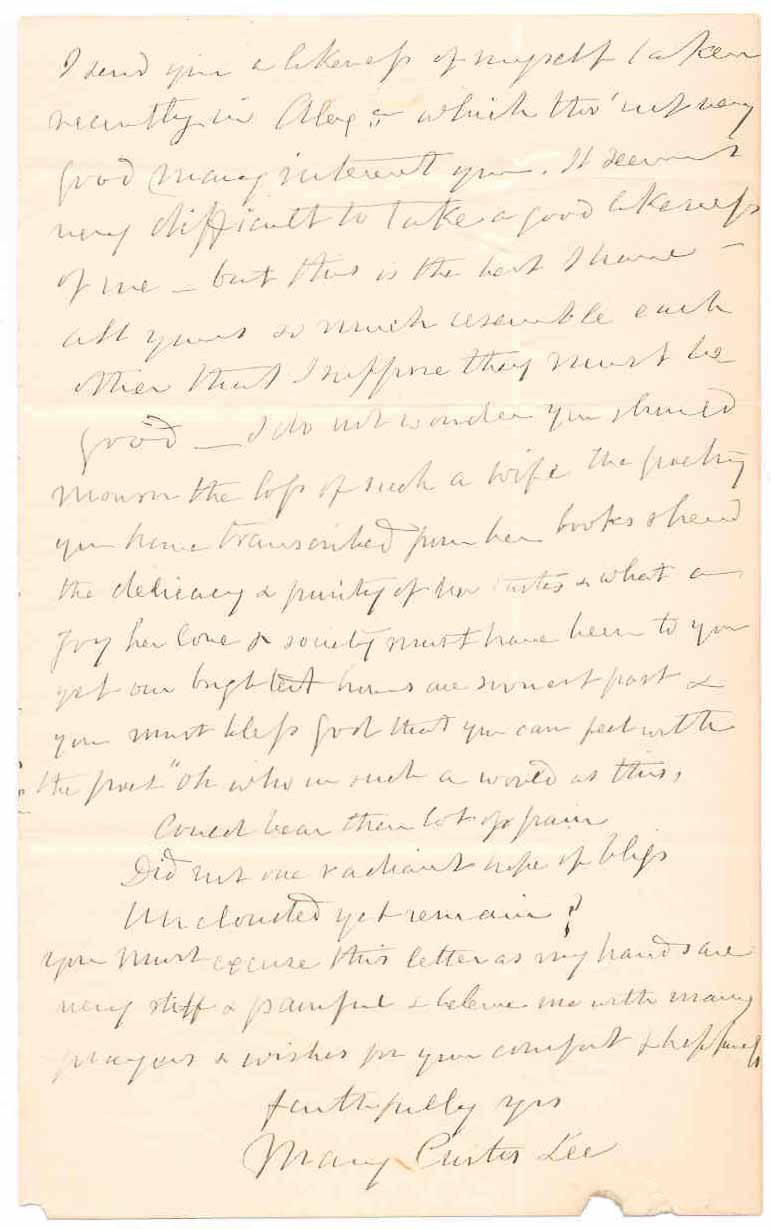 I send you a likeness of myself taken
recently in Alexa which tho' not very
good may interest you. It seems
very difficult to take a good likeness
of me — but this is the best I have —
all yours so much resemble each
other that I suppose they must be
good — I do not wonder you should
mourn the loss of such a wife the poetry
you have transcribed from her books shewd
the delicacy & purity of her tastes & what a
joy her love & society must have been to you
yet our brightest hours are soonest past &
you must bless God that you can feel with
the poet "Oh who in such a world as this,
Could bear their lot of pain
Did not one radiant hope of bliss
Unclouded yet remain?
You must excuse this letter as my hands are
very stiff & painful & believe me with many
prayers & wishes for your comfort & happiness
faithfully yrs
Mary Custis Lee